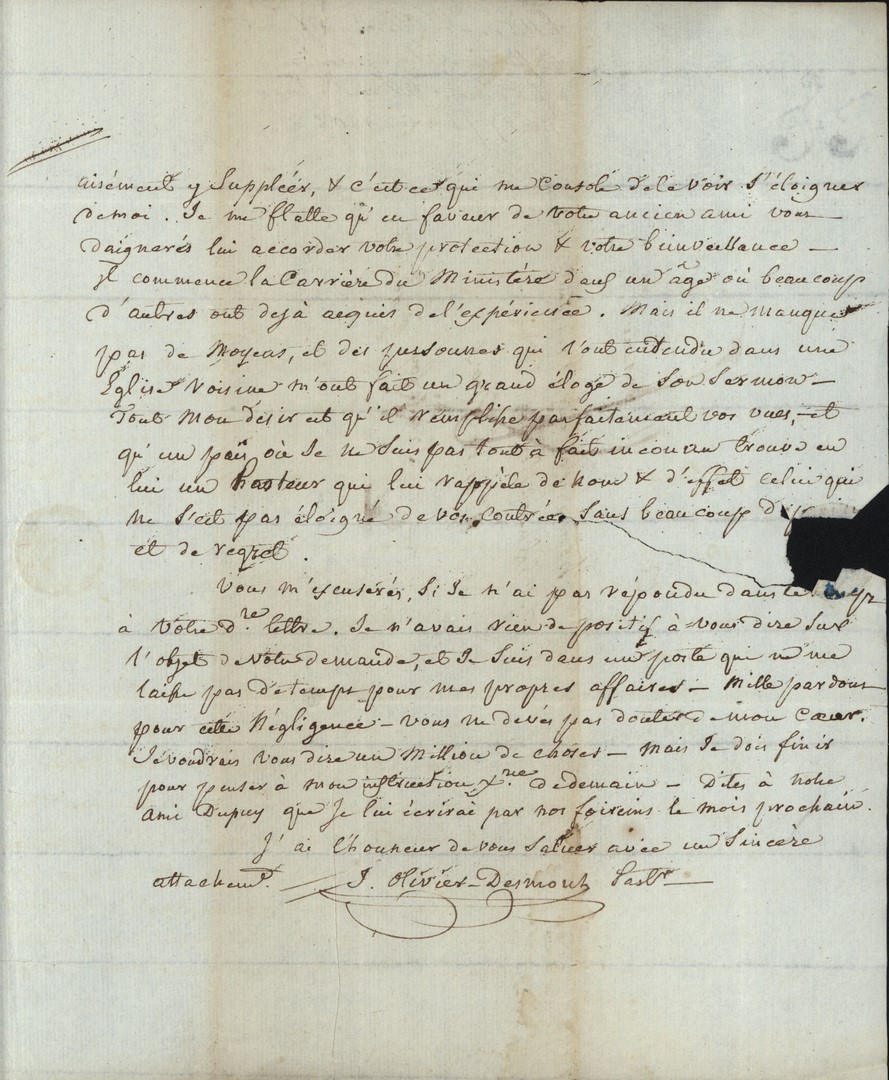 aisément y Suppléer, & c'est ce qui me Console de le voir S'éloigner
de moi. Je me flatte qu'en faveur de votre ancien ami vous
daignerés lui accorder votre protection & votre bienveillance –
Il commence la Carrière du Ministère dans un âge où beaucoup
d'autres ont dejà acquis de l'expérience. Mais il ne manque
pas de Moyens, et des personnes qui l'ont entendu dans une
Eglise Voisine m'ont fait un grand éloge de Son Sermon –
Tout mon désir est qu'il remplisse parfaitement vos vues, et
qu'un païs où Je ne Suis pas tout à fait inconnu trouve en
lui un Pasteur qui lui rappèle de nom & d'effet celui qui
ne S'est pas éloigné de vos Contrées Sans beaucoup
et de regret.
Vous m'excuserés, Si Je n'ai pas répondu dans le
à Votre d.re lettre. Je n'avais rien de positif à vous dire Sur
l'objet de votre demande, et Je Suis dans un poste qui ne me
laisse pas de temps pour mes propres affaires – Mille pardons
pour cette Négligence – Vous ne devés pas douter de mon Cœur.
Je voudrais vous dire un Million de choses – mais Je dois finir
pour penser à mon instruction x.ne de demain – Dites à notre
ami Dupuy que Je lui écrirai par nos foireins le mois prochain.
J'ai l'honneur de vous Saluer avec un Sincère
attachem.t J. Olivier-Desmont Past.r